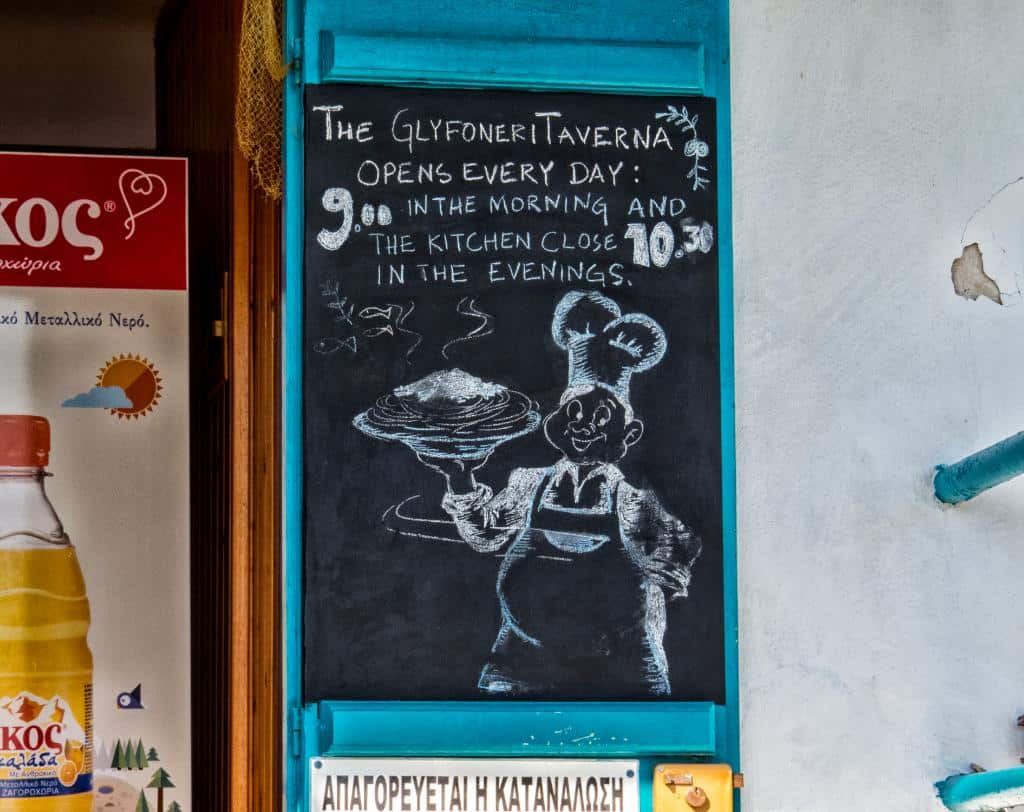 THE GLYFONERI TAVERNA
OPENS EVERY DAY:
9.00 IN THE MORNING AND
THE KITCHEN CLOSE 10.30
IN THE EVENINGS.
κος®
Μεταλλικό Νερό.
ΚΟΣ
Με Ανθρακικό
Μεταλλικό Νερό
ΖΑΓΟΡΟΧΩΡΙΑ
ΑΠΑΓΟΡΕΥΕΤΑΙ Η ΚΑΤΑΝΑΛΩΣΗ